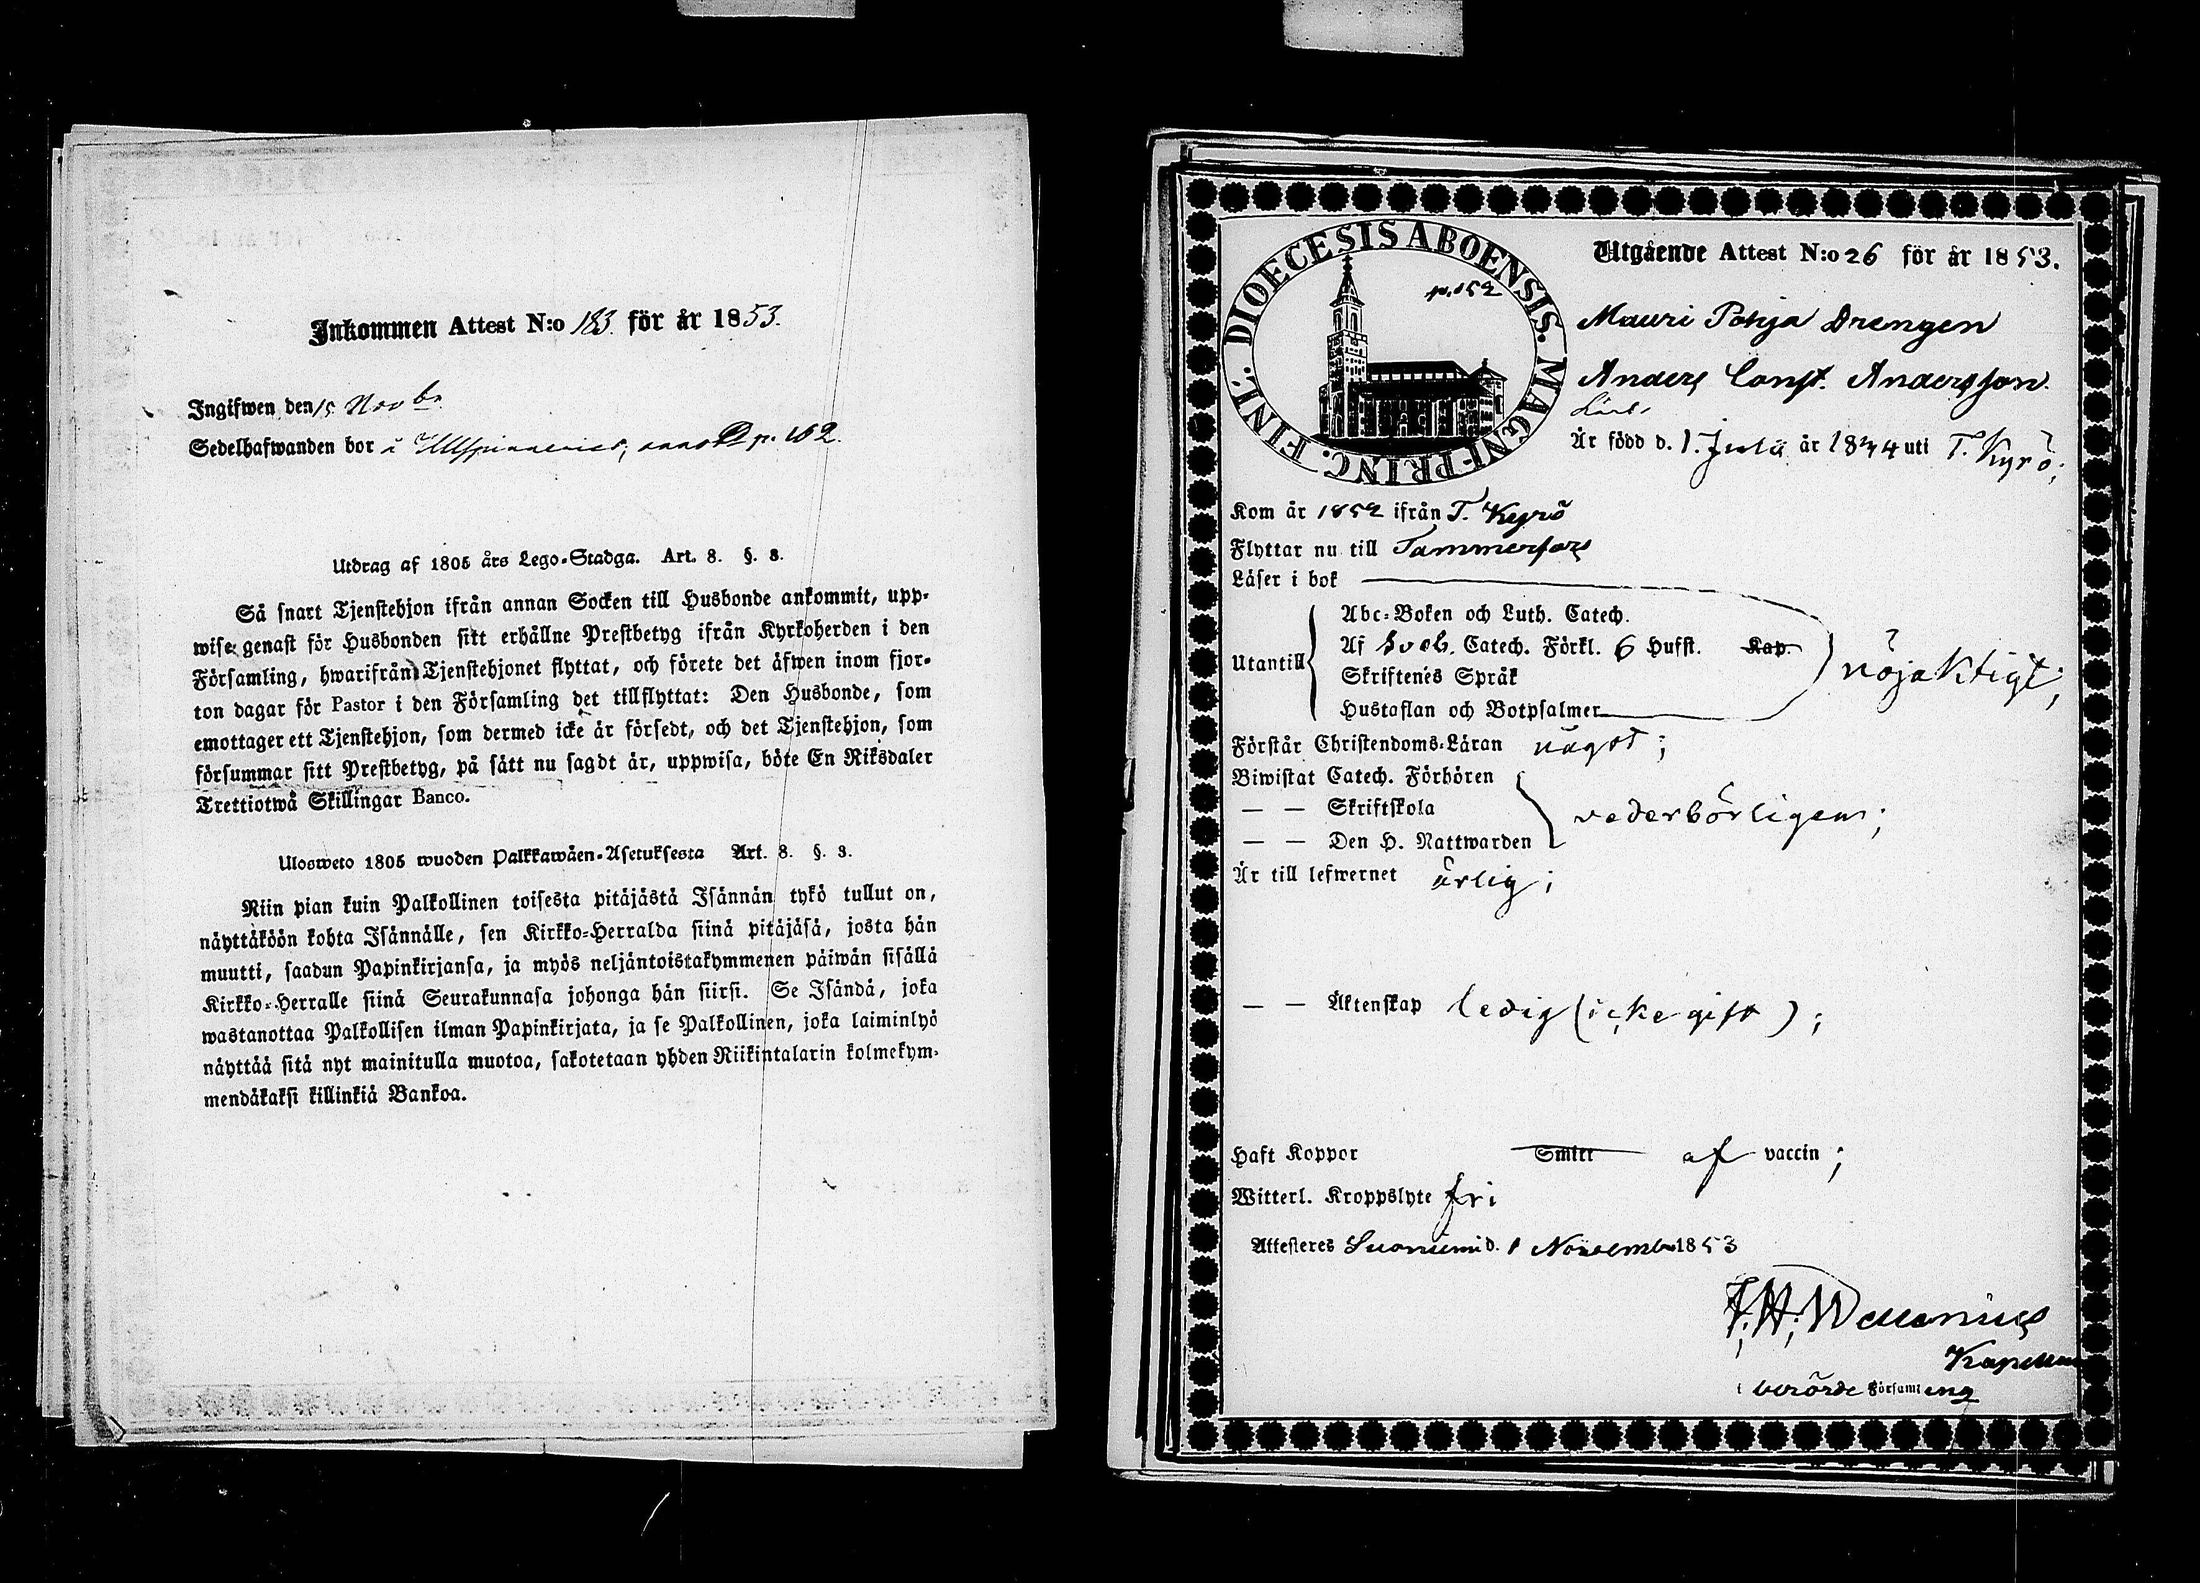 Inkommen Attest N:o 183. för år 1853.
Ingifwen den 15 Novbr.
Sedelhafwanden bor i p. 162.
Utdrag af 1805 års Lego-Stadga. Art. 8. §. 3.
Så snart Tjenstehjon ifrån annan Socken till Husbonde ankommit, upp-
wise genast för Husbonden sitt erhållne Prestbetyg ifrån Kyrkoherden i den
Församling, hwarifrån Tjenstehjonet flyttat, och förete det äfwen inom fjor-
ton dagar för Pastor i den Församling det tillflyttat: Den Husbonde, som
emottager ett Tjenstehjon, som dermed icke är försedt, och det Tjenstehjon, som
försummar sitt Prestbetyg, på sätt nu sagdt är, uppwisa, böte En Riksdaler
Trettiotwå Skillingar Banco.
Ulosweto 1805 wuoden Palkkawäen-Asetuksesta Art. 8. §. 3.
Niin pian kuin Palkollinen toisesta pitäjästä Isännän tykö tullut on,
näyttäköön kohta Isännälle, sen Kirkko-Herralda siinä pitäjäsä, josta hän
muutti, saadun Papinkirjansa, ja myös neljäntoistakymmenen päiwän sisällä
Kirkko-Herralle siinä Seurakunnasa johonga hän siirsi. Se Isändä, joka
wastanottaa Palkollisen ilman Papinkirjata, ja se Palkollinen, joka laiminlyö
näyttää sitä nyt mainitulla muotoa, sakotetaan yhden Riikintalarin kolmekym-
mendäkaksi killinkiä Bankoa.
DIOECESIS ABOENSIS. MAGNI-PRINC. FINL.
p. 152
Utgående Attest N:o 26 för år 1853.
Mauri Pohja Drengen
Anders Const. Andersson
Är född d. 1. Julii år 1844 uti T. Kyrö;
Kom år 1852 ifrån T. Kyrö
Flyttar nu till Tammerfors
Läser i bok
Utantill
Abc-Boken och Luth. Catech.
Af Sveb. Catech. Förkl. 6 Hufst. Kap.
Skriftenes Språk
Hustaflan och Botpsalmer
nöjaktigt;
Förstår Christendoms-Läran något;
Biwistat Catech. Förhören
— — Skriftskola
— — Den H. Nattwarden
vederbörligen;
Är till lefwernet ärlig;
— — Äktenskap ledig (icke gift);
Haft Koppor Smitt af vaccin;
Witterl. Kroppslyte fri
Attesteres Suoniemi d. 1 November 1853
Kapellan
i berörde Församling